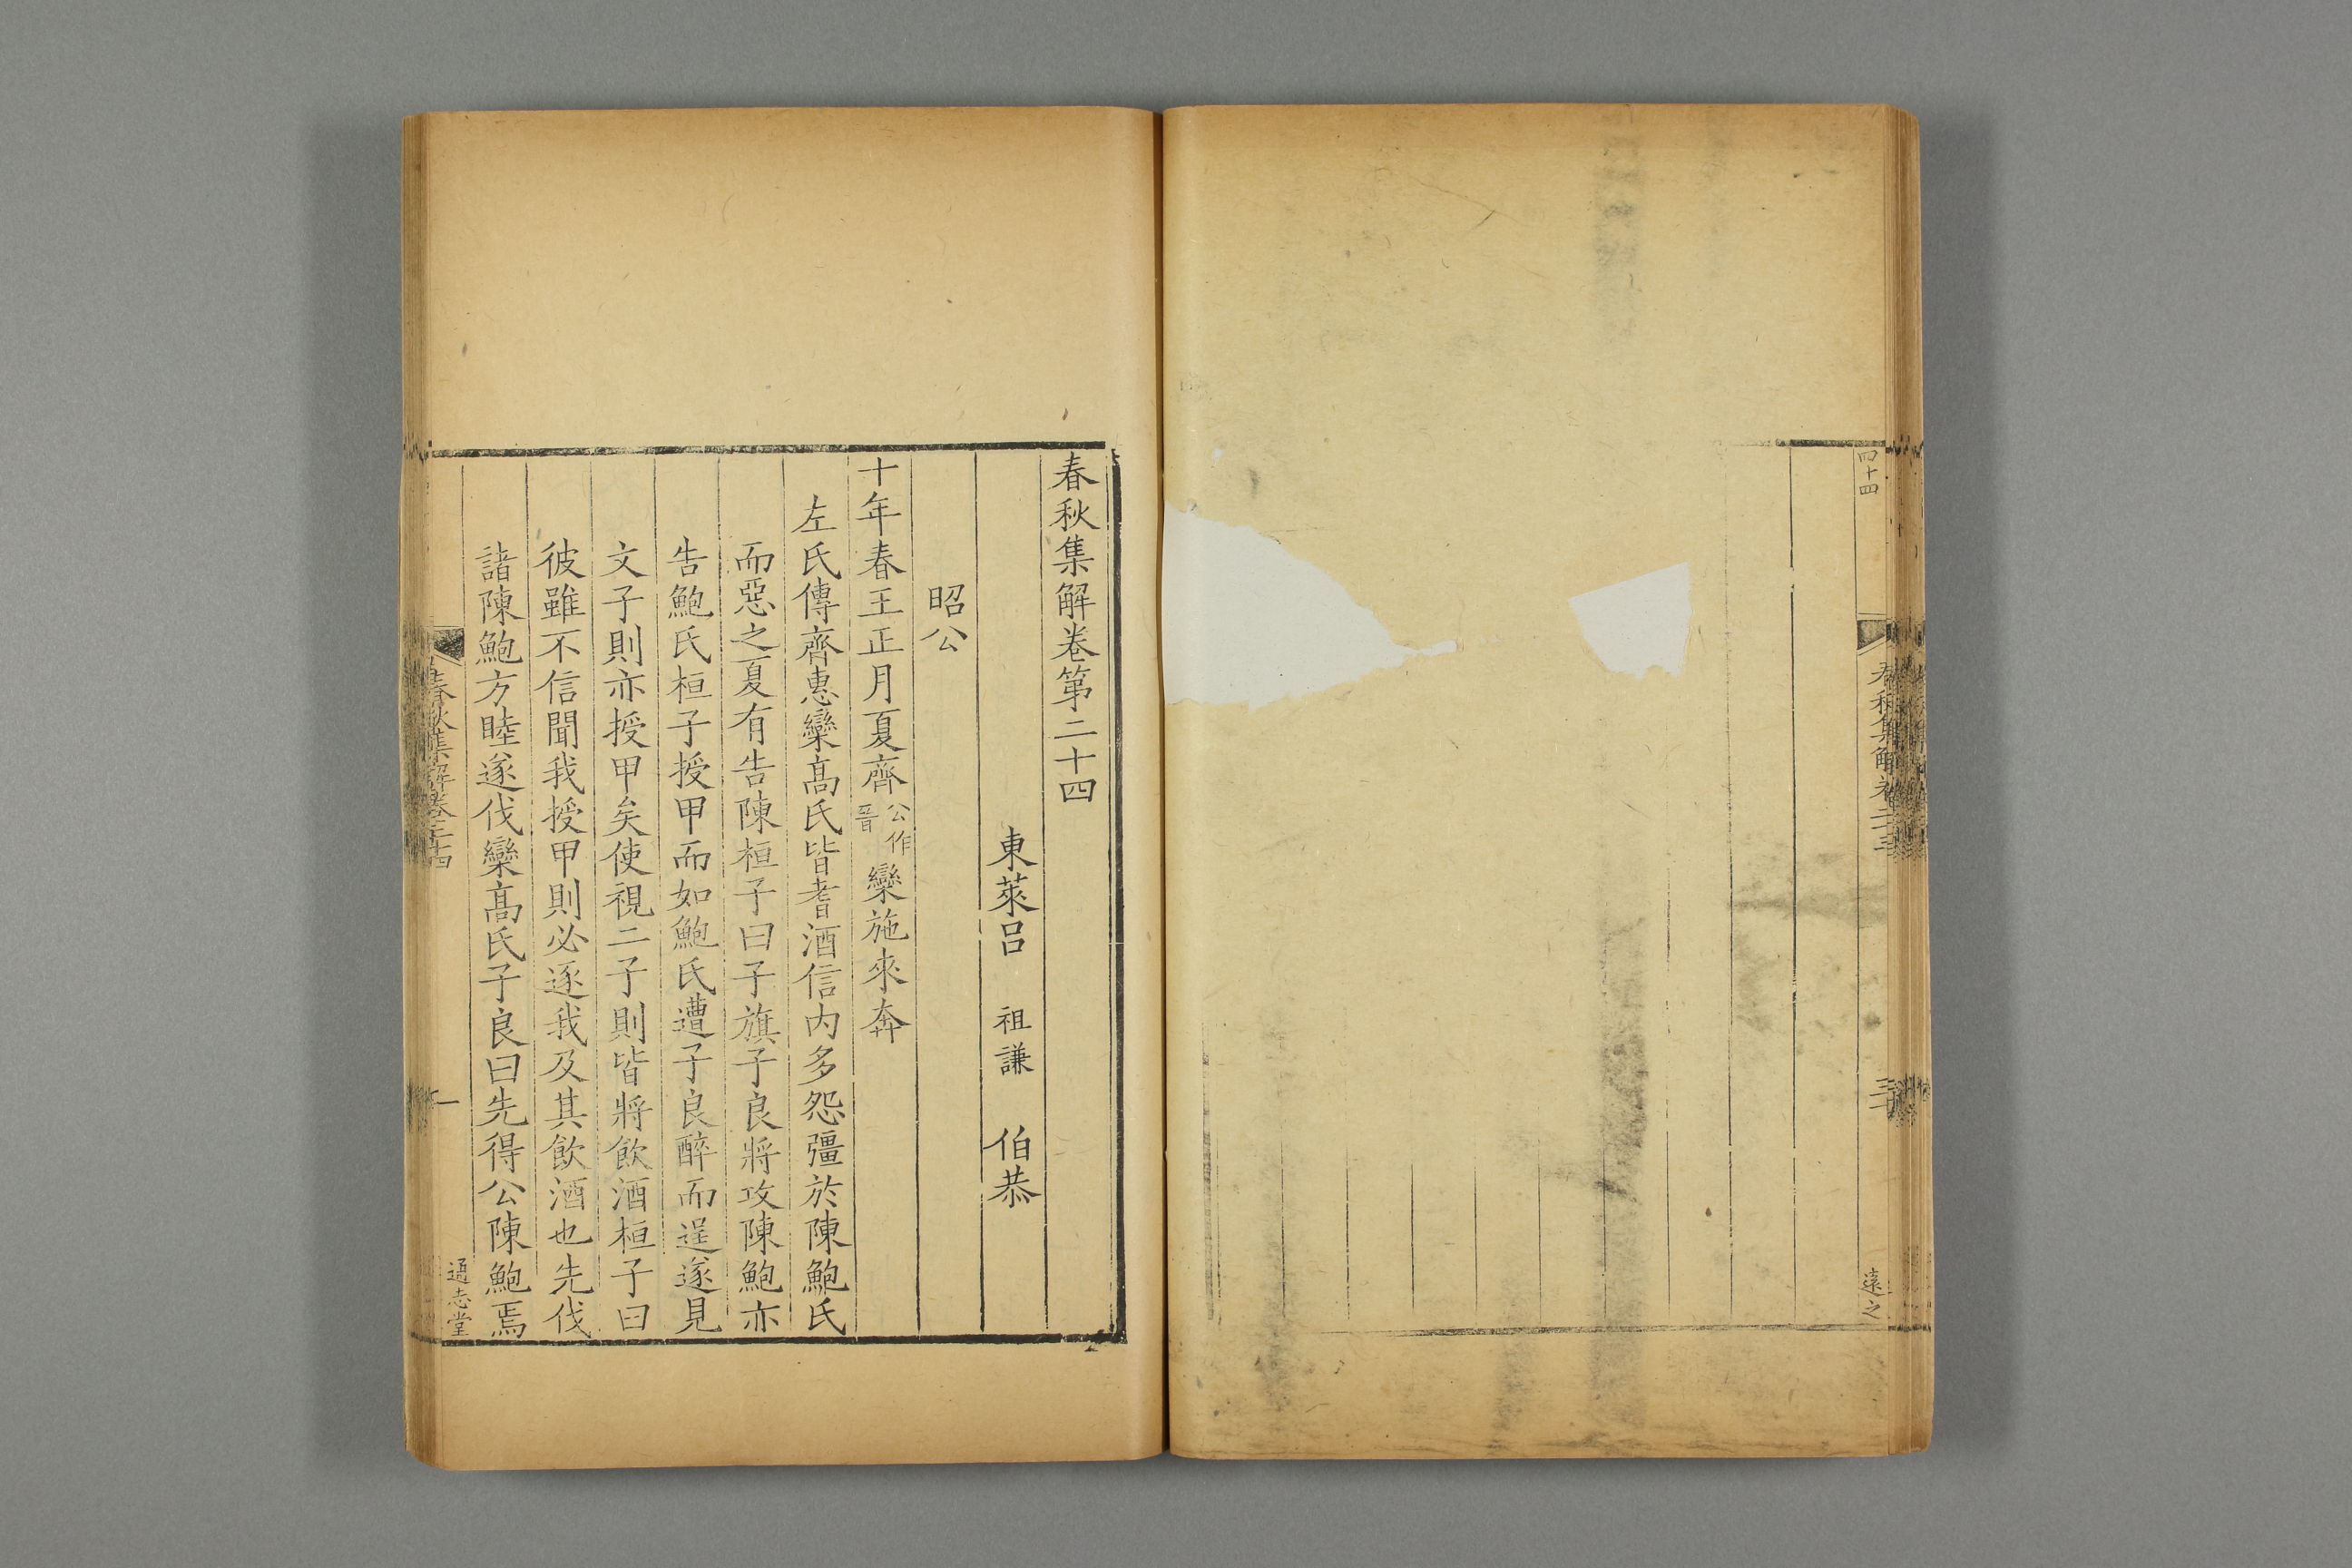 四十四
春秋集解卷二十三
三十
遠之
春秋集解卷第二十四
東萊呂 祖謙 伯恭
昭公
十年春王正月夏齊公作晉欒施來奔
左氏傳齊惠欒高氏皆耆酒信内多怨彊於陳鮑氏
而惡之夏有告陳桓子曰子旗子良將攻陳鮑亦
告鮑氏桓子授甲而如鮑氏遭子良醉而逞遂見
文子則亦授甲矣使視二子則皆將飲酒桓子曰
彼雖不信聞我授甲則必逐我及其飲酒也先伐
諸陳鮑方睦遂伐欒高氏子良曰先得公陳鮑焉
春秋集解卷二十四
一
通志堂